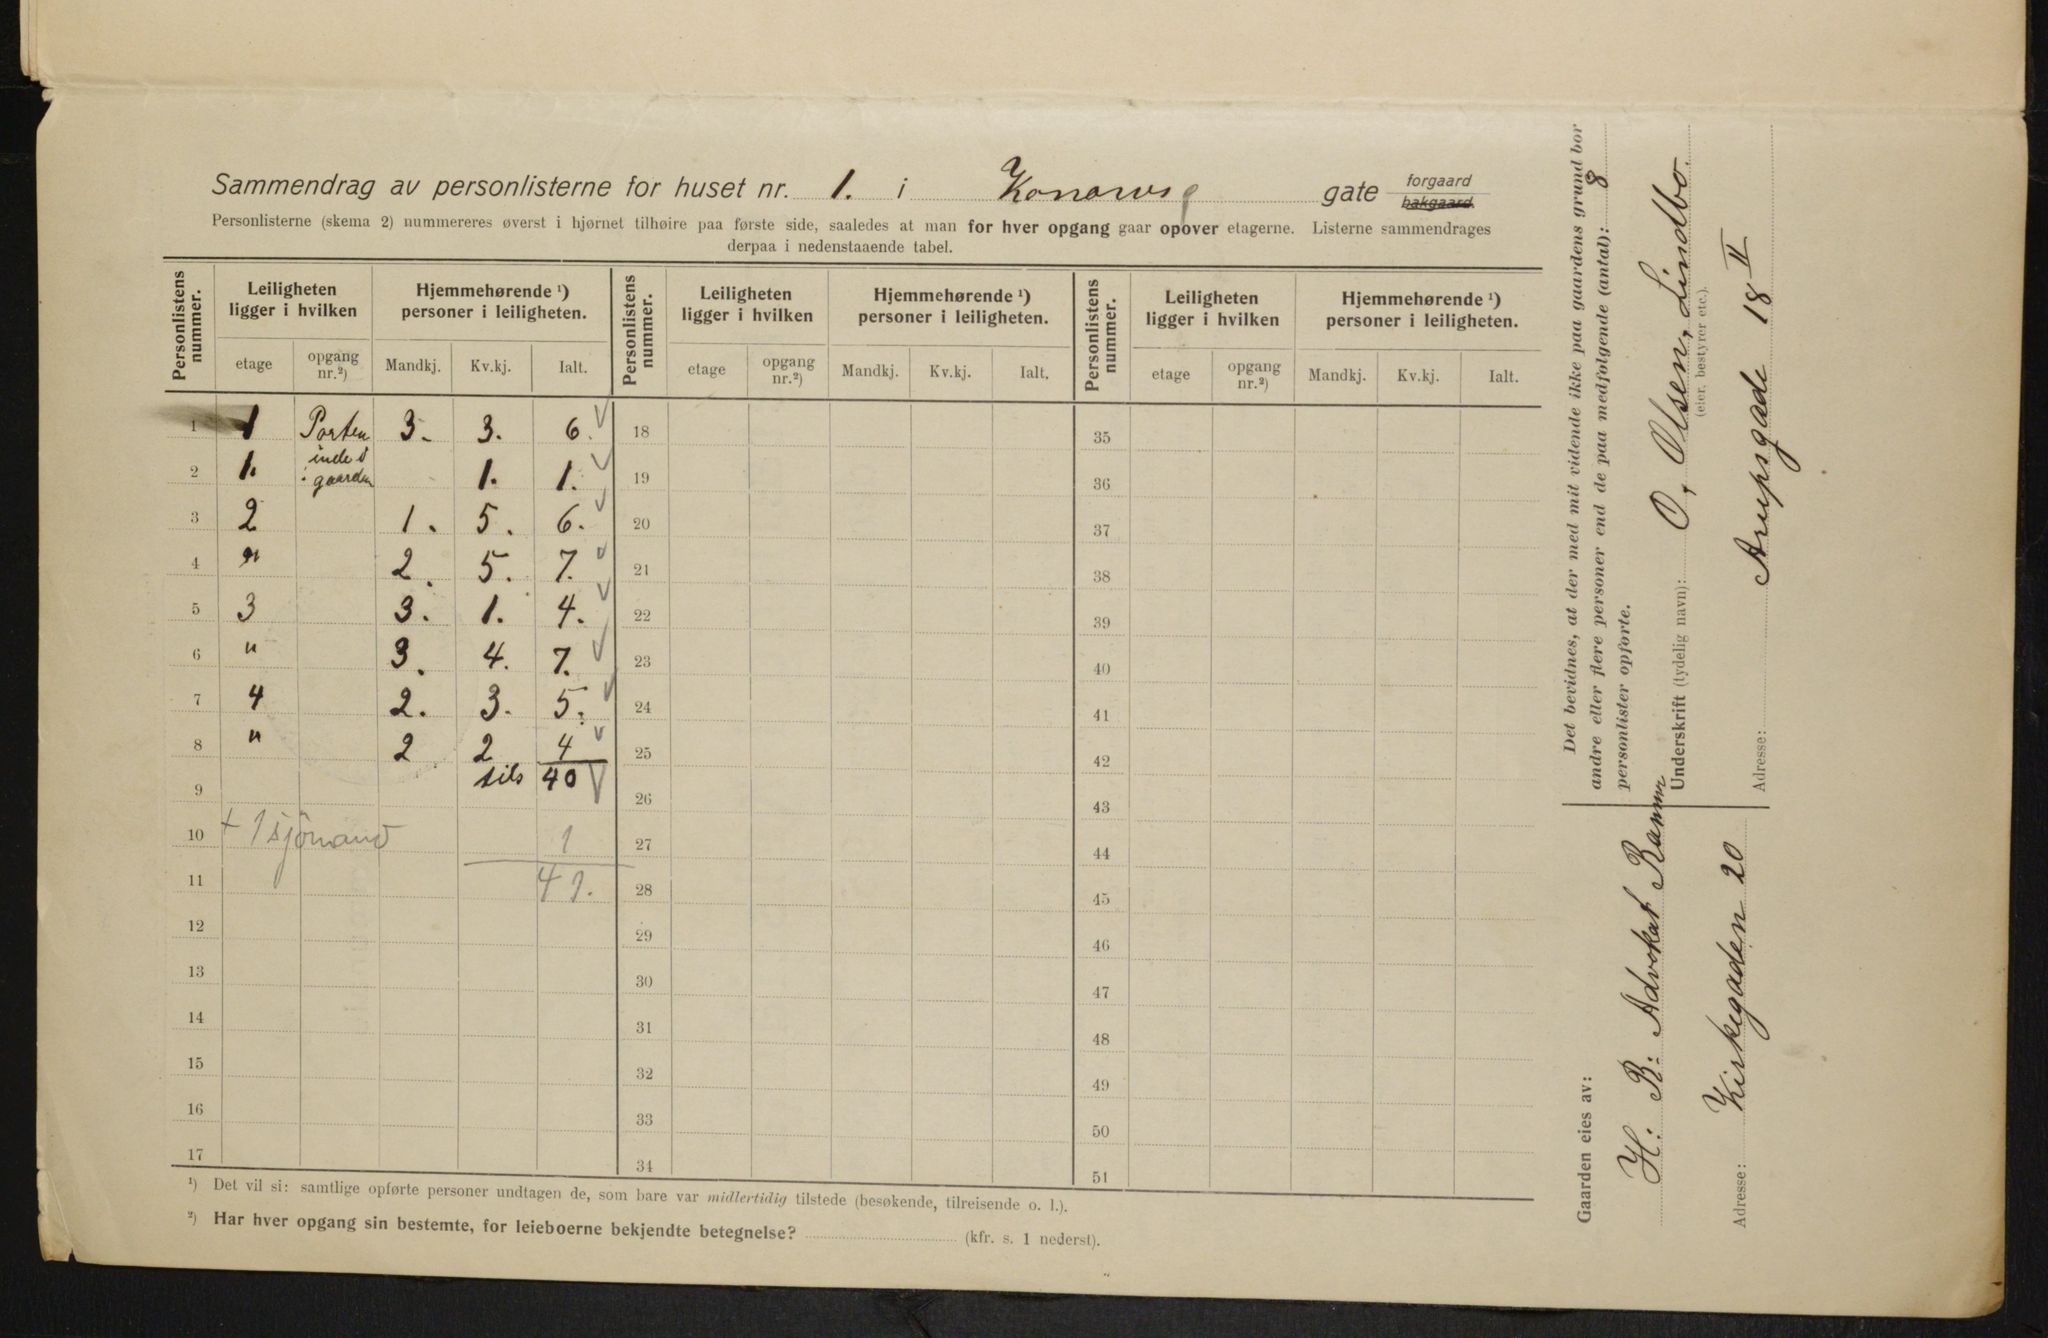 Sammendrag av personlisterne for huset nr. 1. i Konows g gate forgaard bakgaard.
Personlisterne (skema 2) nummereres øverst i hjørnet tilhøire paa første side, saaledes at man for hver opgang gaar opover etagerne. Listerne sammendrages
derpaa i nedenstaaende tabel.
Personlistens nummer. Leiligheten ligger i hvilken Hjemmehørende ¹) personer i leiligheten. Personlistens nummer. Leiligheten ligger i hvilken Hjemmehørende ¹) personer i leiligheten. Personlistens nummer. Leiligheten ligger i hvilken Hjemmehørende ¹) personer i leiligheten.
etage opgang nr.²) Mandkj. Kv.kj. Ialt. etage opgang nr.²) Mandkj. Kv.kj. Ialt. etage opgang nr.²) Mandkj. Kv.kj. Ialt.
1 1 Porten 3. 3. 6. 18 35
2 1. inde i gaarden 1. 1. 19 36
3 2 1. 5. 6. 20 37
4 " 2. 5. 7. 21 38
5 3 3. 1. 4. 22 39
6 " 3. 4. 7. 23 40
7 4 2. 3. 5. 24 41
8 " 2 2 4 25 42
9 tils 40 26 43
10 + 1 sjömand 1 27 44
11 41. 28 45
12 29 46
13 30 47
14 31 48
15 32 49
16 33 50
17 34 51
¹) Det vil si: samtlige opførte personer undtagen de, som bare var midlertidig tilstede (besøkende, tilreisende o. l.).
²) Har hver opgang sin bestemte, for leieboerne bekjendte betegnelse? (kfr. s. 1 nederst).
Det bevidnes, at der med mit vidende ikke paa gaardens grund bor
andre eller flere personer end de paa medfølgende (antal): 8
personlister opførte.
Underskrift (tydelig navn): O. Olsen, Lindbo.
(eier, bestyrer etc.).
Adresse: Arupsgade 18 II
Gaarden eies av:
H. R: Advokat Ramm
Adresse: Kirkegaden 20